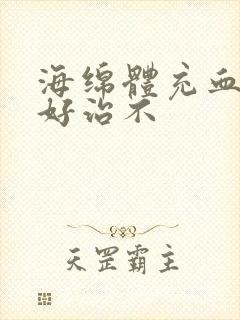 海绵體充血
好治不
天罡霸主